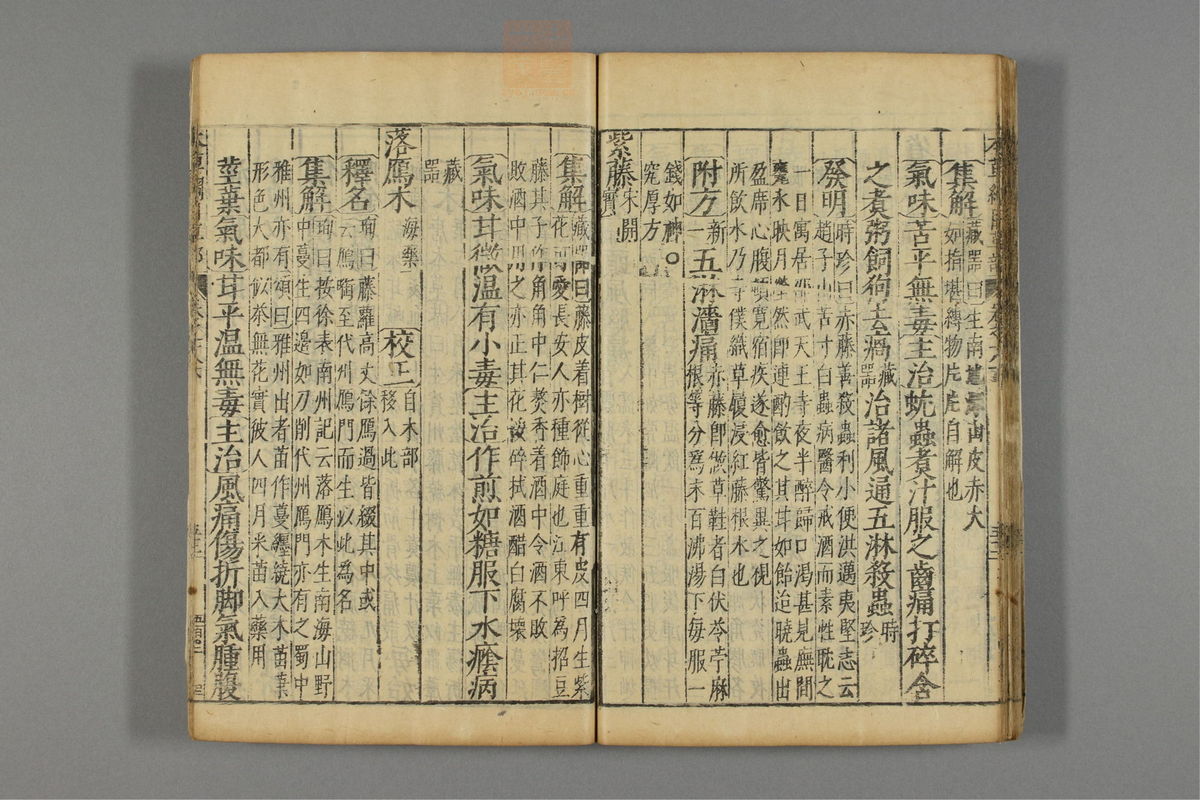 集解藏器曰生南地深山皮赤大
如指堪縛物片片自解也
氣味苦平無毒主治蚘蟲煮汁服之齒痛打碎含
之煮粥飼狗去瘑藏器治諸風通五淋殺蟲時珍
發明時珍曰赤藤善殺蟲利小便洪邁夷堅志云
趙子山苦寸白蟲病醫令戒酒而素性耽之
一日寓居邵武天王寺夜半醉歸口渴甚見廡間
甕水映月瑩然即連酌飲之其甘如飴迨曉蟲出
盈席心腹頓寬宿疾遂愈皆驚異之視
所飲水乃寺僕織草履浸紅藤根水也
附方新一五淋澀痛赤藤即做草鞋者白伏苓苧麻
根等分為末百沸湯下每服一
錢如神○
究厚方
紫藤宋開寶
集解藏器曰藤皮着樹從心重重有皮四月生紫
花可愛長安人亦種飾庭也江東呼為招豆
藤其子作角角中仁熬香着酒中令酒不敗
敗酒中用之亦正其花挼碎拭酒醋白腐壞
氣味甘微溫有小毒主治作煎如糖服下水癊病
藏器
落鴈木海藥校正自木部移入此
釋名珣曰藤蘿高丈餘鴈過皆綴其中或
云鴈銜至代州鴈門而生以此為名
集解珣曰按徐表南州記云落鴈木生南海山野
中蔓生四邊如刀削代州鴈門亦有之蜀中
雅州亦有頌曰雅州出者苗作蔓纏繞大木苗葉
形色大都似茶無花實彼人四月采苗入藥用
莖葉氣味甘平溫無毒主治風痛傷折脚氣腫腹